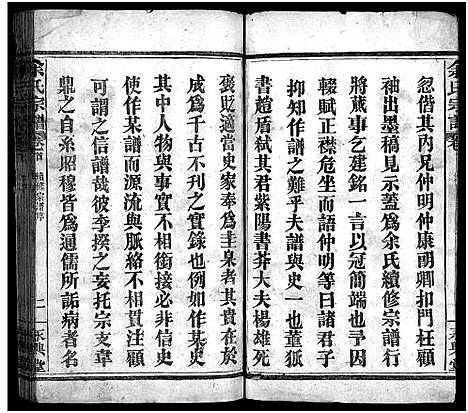 余氏宗譜
忽偕其內兄仲康國卿扣門枉顧
袖出墨稿見示蓋爲余氏續修宗譜行
將蕆事乞建銘一言以冠簡端也不佞
輟賦正襟危坐而語仲明等曰諸君子
抑知作譜之難乎夫譜與史一也董狐
書趙盾弑其君紫陽書莽大夫楊雄死
褒貶適當史家奉爲圭臬者其貴在於
成爲千古不刋之實錄也例安作史
其中人物與事實不能接洽必非信史
使作某譜而源流與脈絡不相貫注顧
可謂之信譜哉彼李揆之妄托宗支韋
鼎之自紊昭穆皆爲通儒所詬病者名
余氏宗譜 卷首 續修宗譜序 二 永興堂